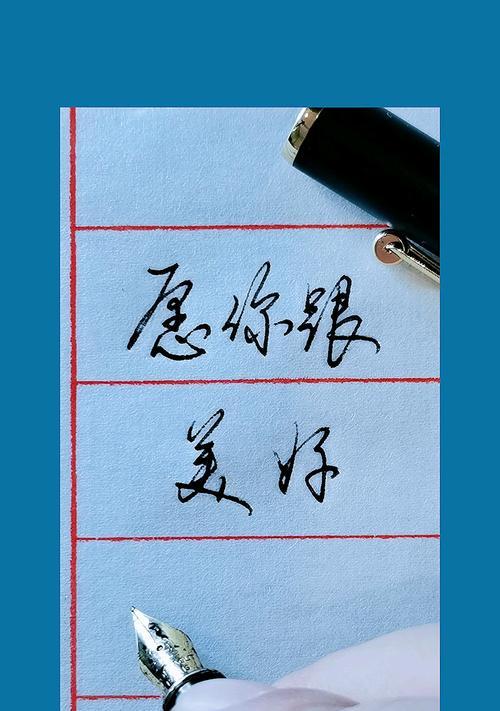 愿你跟
美好